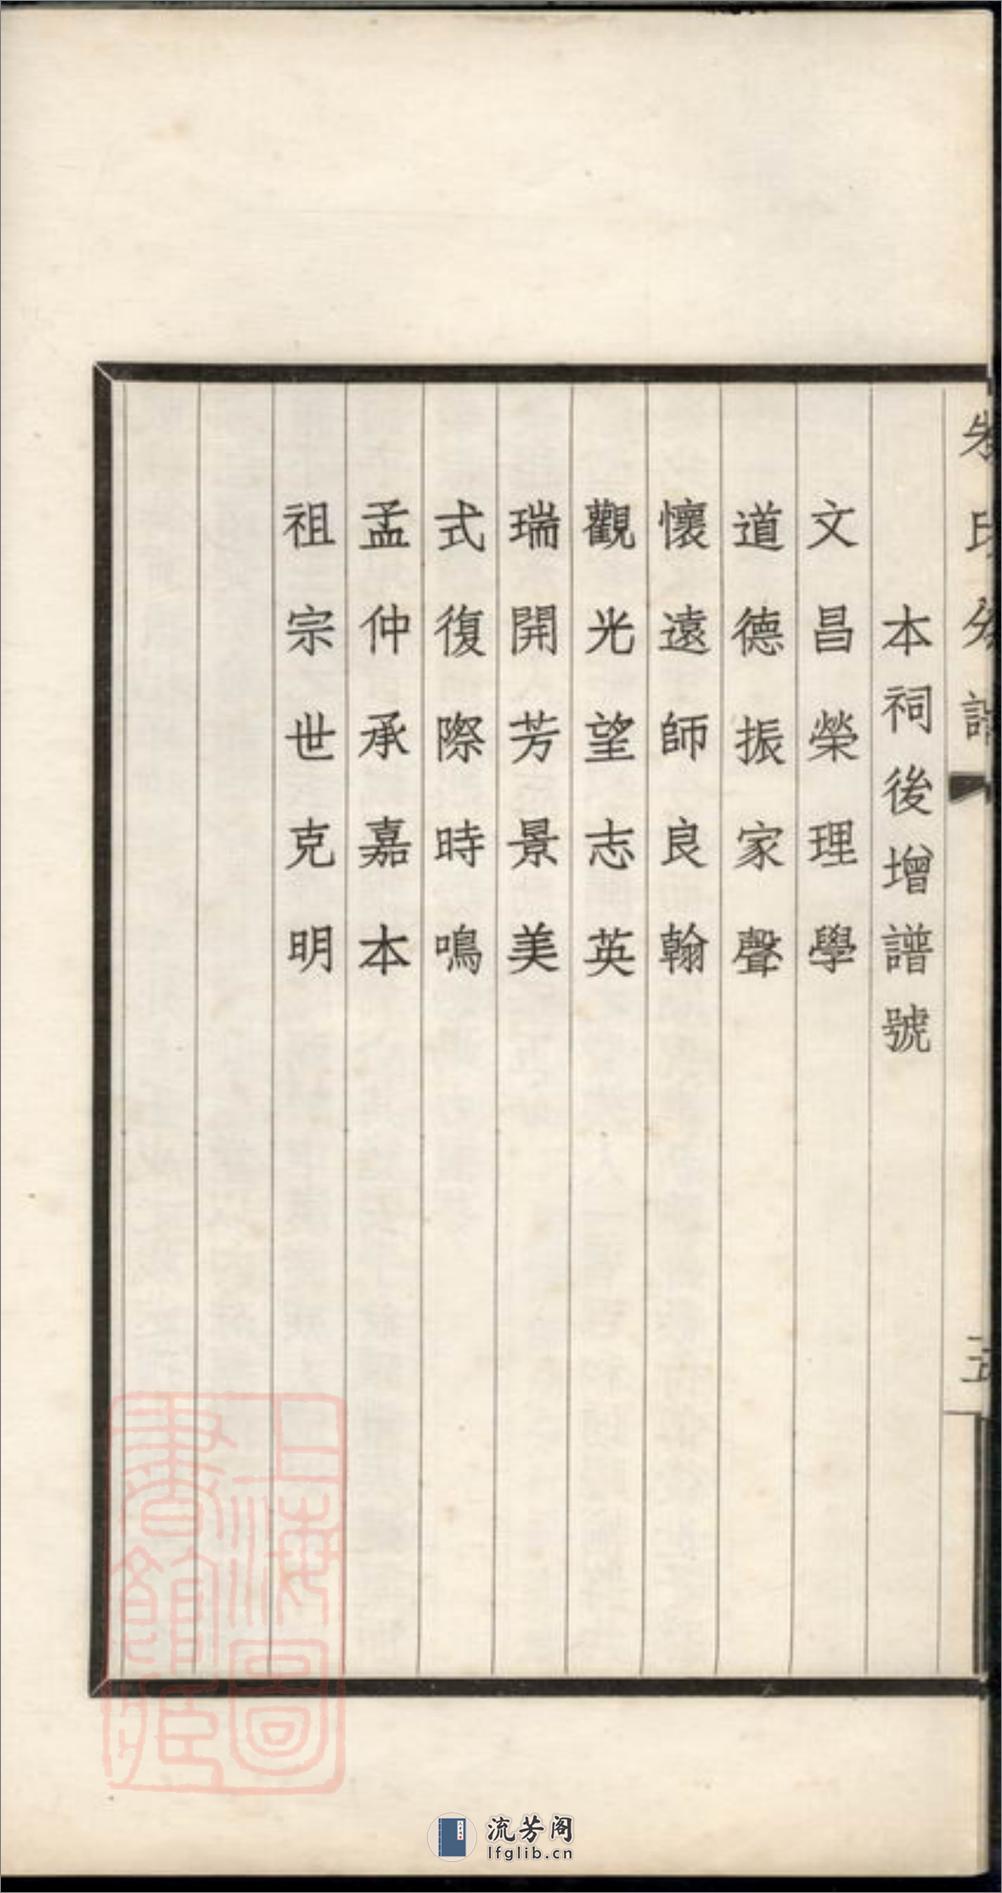 本祠後增譜號
文昌榮理學
道德振家聲
懷遠師良翰
觀光望志英
瑞開芳景美
式復際時鳴
孟仲承嘉本
祖宗世克明
上海圖
書館藏
流芳阁
lfglib.cn